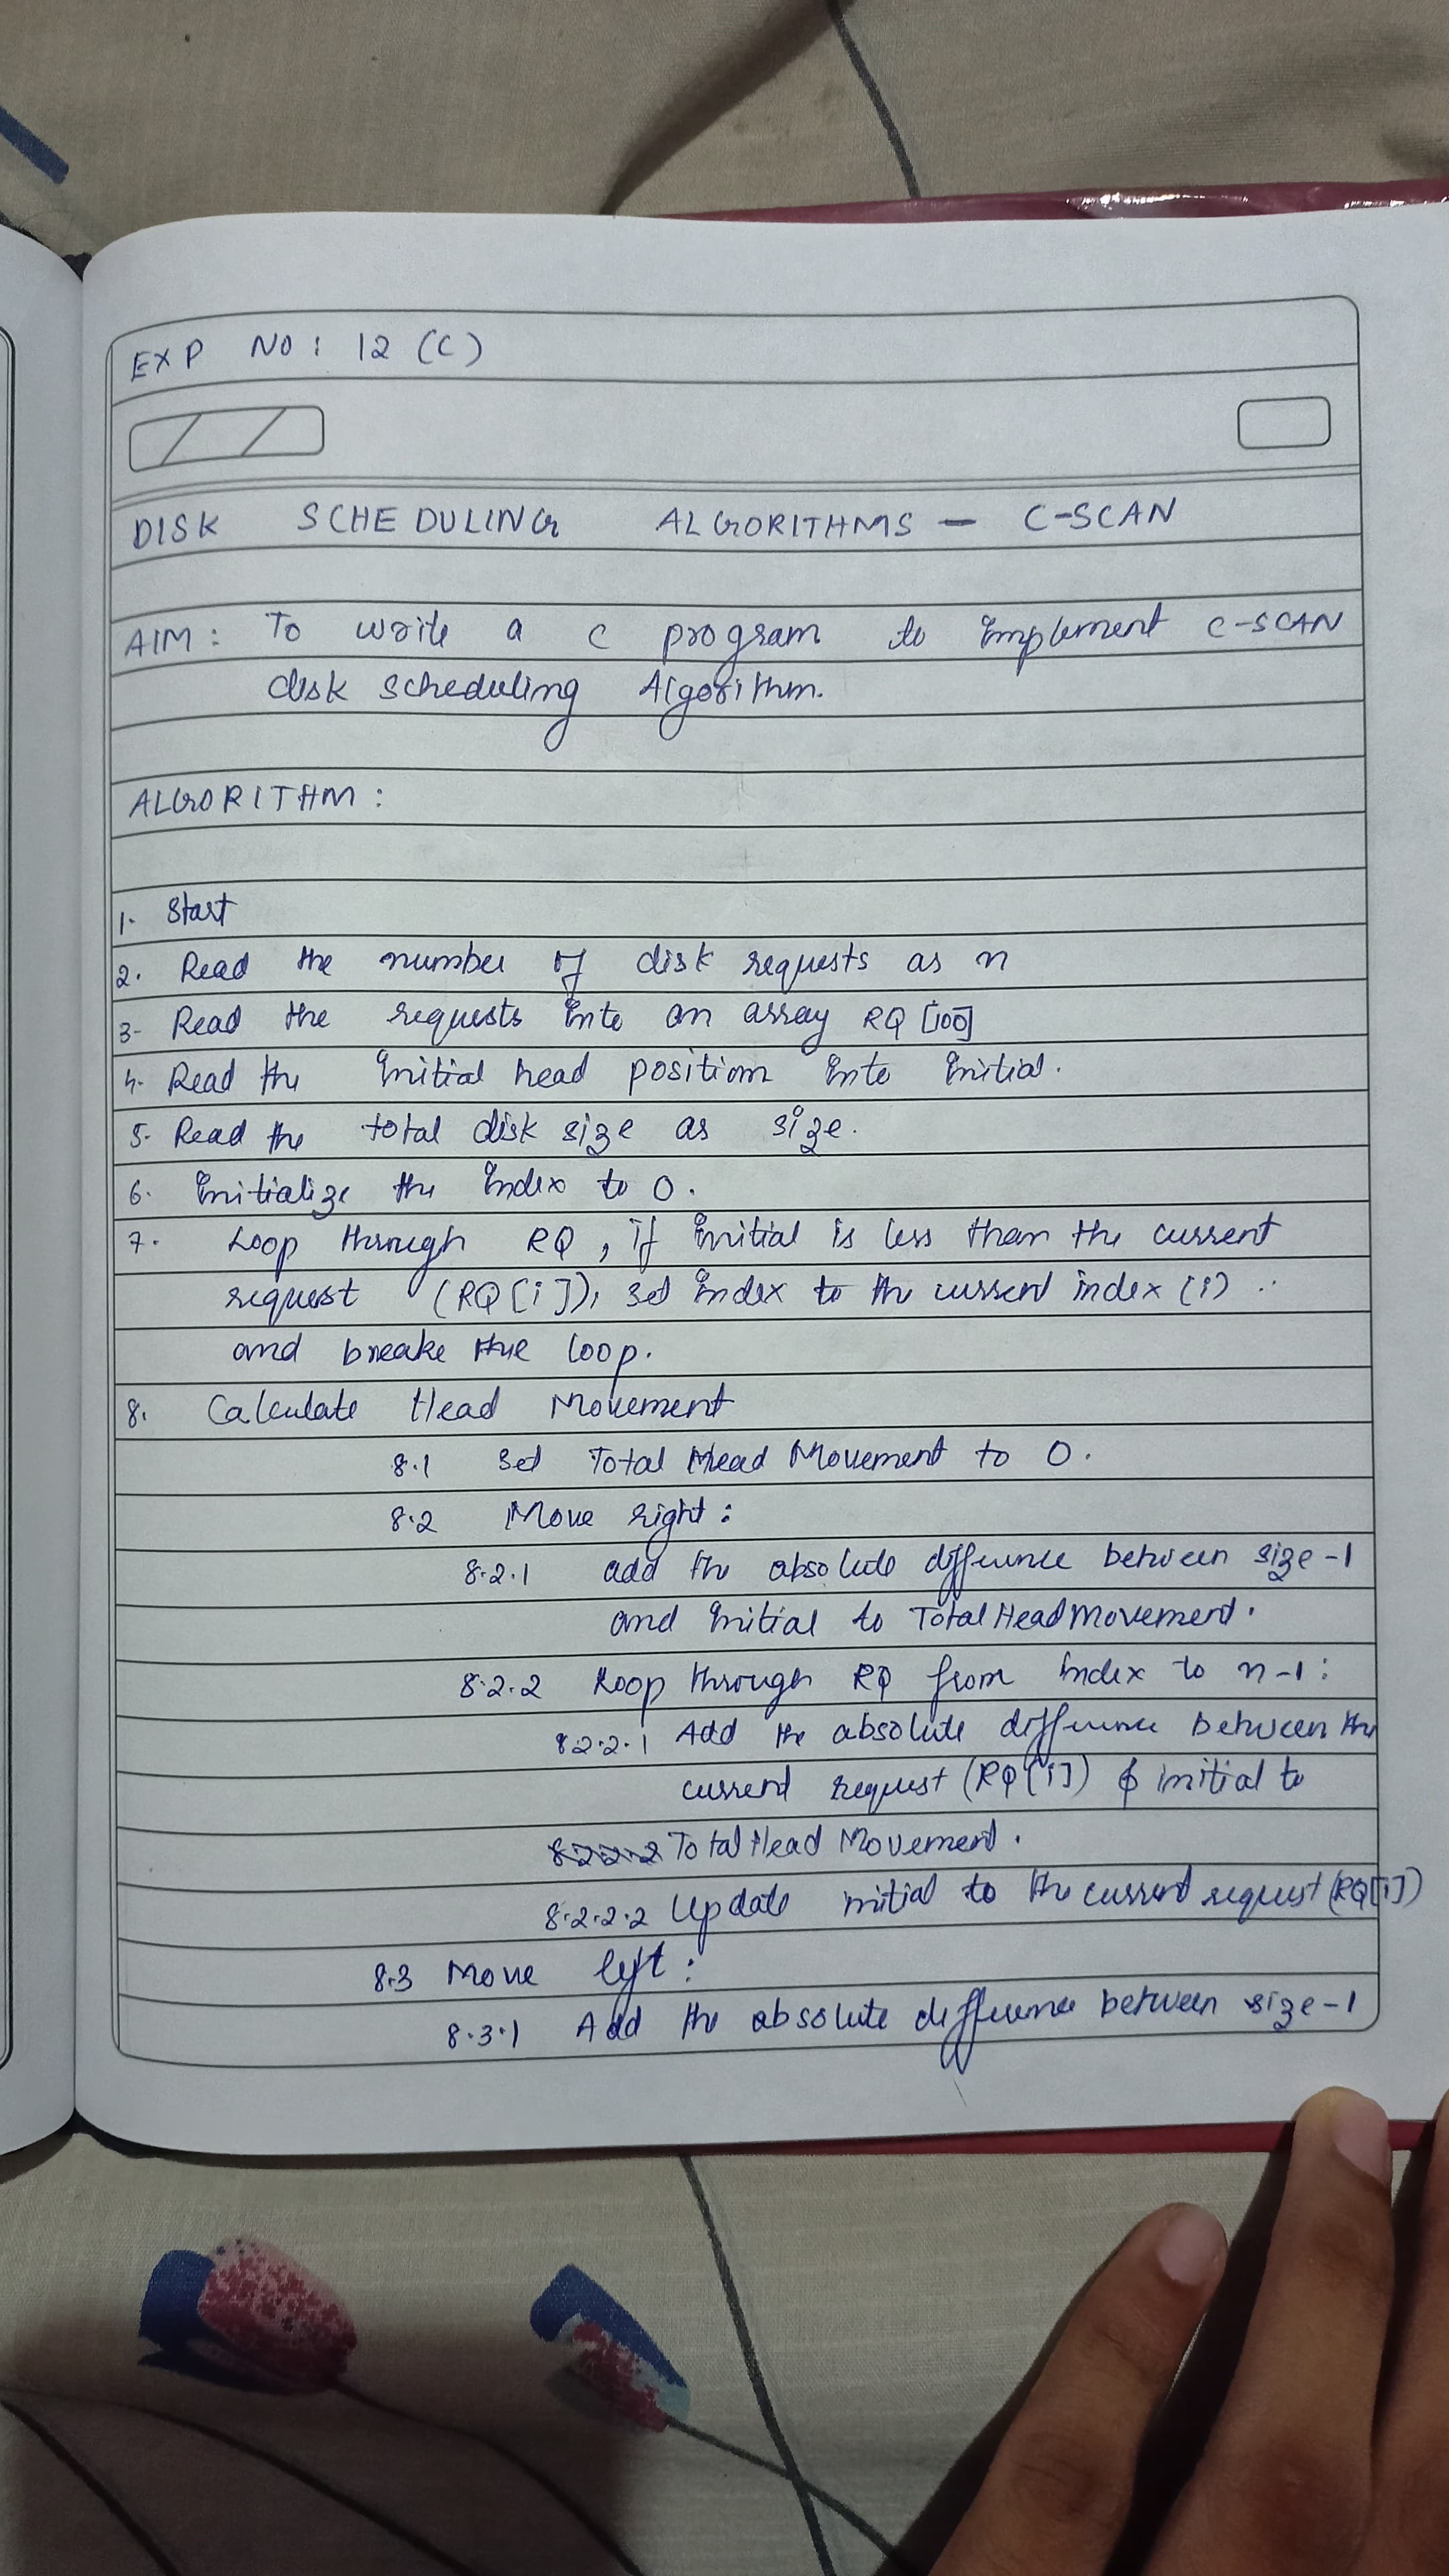 EXP NO: 12 (C)
DISK SCHEDULING ALGORITHMS - C-SCAN
AIM: To write a C program to implement C-SCAN
disk scheduling Algorithm.
ALGORITHM:
1. Start
2. Read the number of disk requests as n
3- Read the requests into an array RQ [100]
4. Read the initial head position into initial.
5. Read the total disk size as size.
6. Initialize the index to 0.
7. Loop through RQ, if initial is less than the current
request (RQ[i]), set index to the current index (i)
and breake the loop.
8. Calculate Head Movement
8.1 Set Total Head Movement to 0.
8.2 Move right:
8.2.1 add the absolute difference between size-1
and initial to Total Head Movement.
8.2.2 Loop through RQ from index to n-1:
8.2.2.1 Add the absolute difference between the
current request (RQ[i]) & initial to
8.2.2.2 Total Head Movement.
8.2.2.2 Update initial to the current request (RQ[i])
8.3 Move left:
8.3.1 Add the absolute difference between size-1